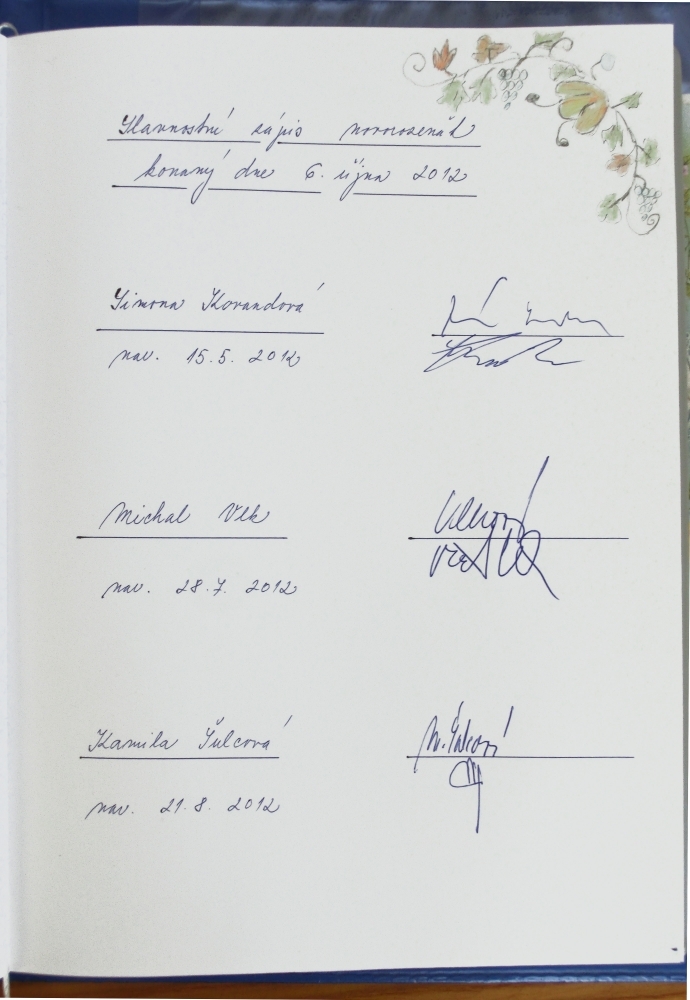 Slavnostní zápis novorozeňat
konaný dne 6. října 2012
Simona Korandová
nar. 15.5. 2012
Michal Vlk
nar. 28.7. 2012
Vlková
Kamila Šulcová
nar. 21.8. 2012